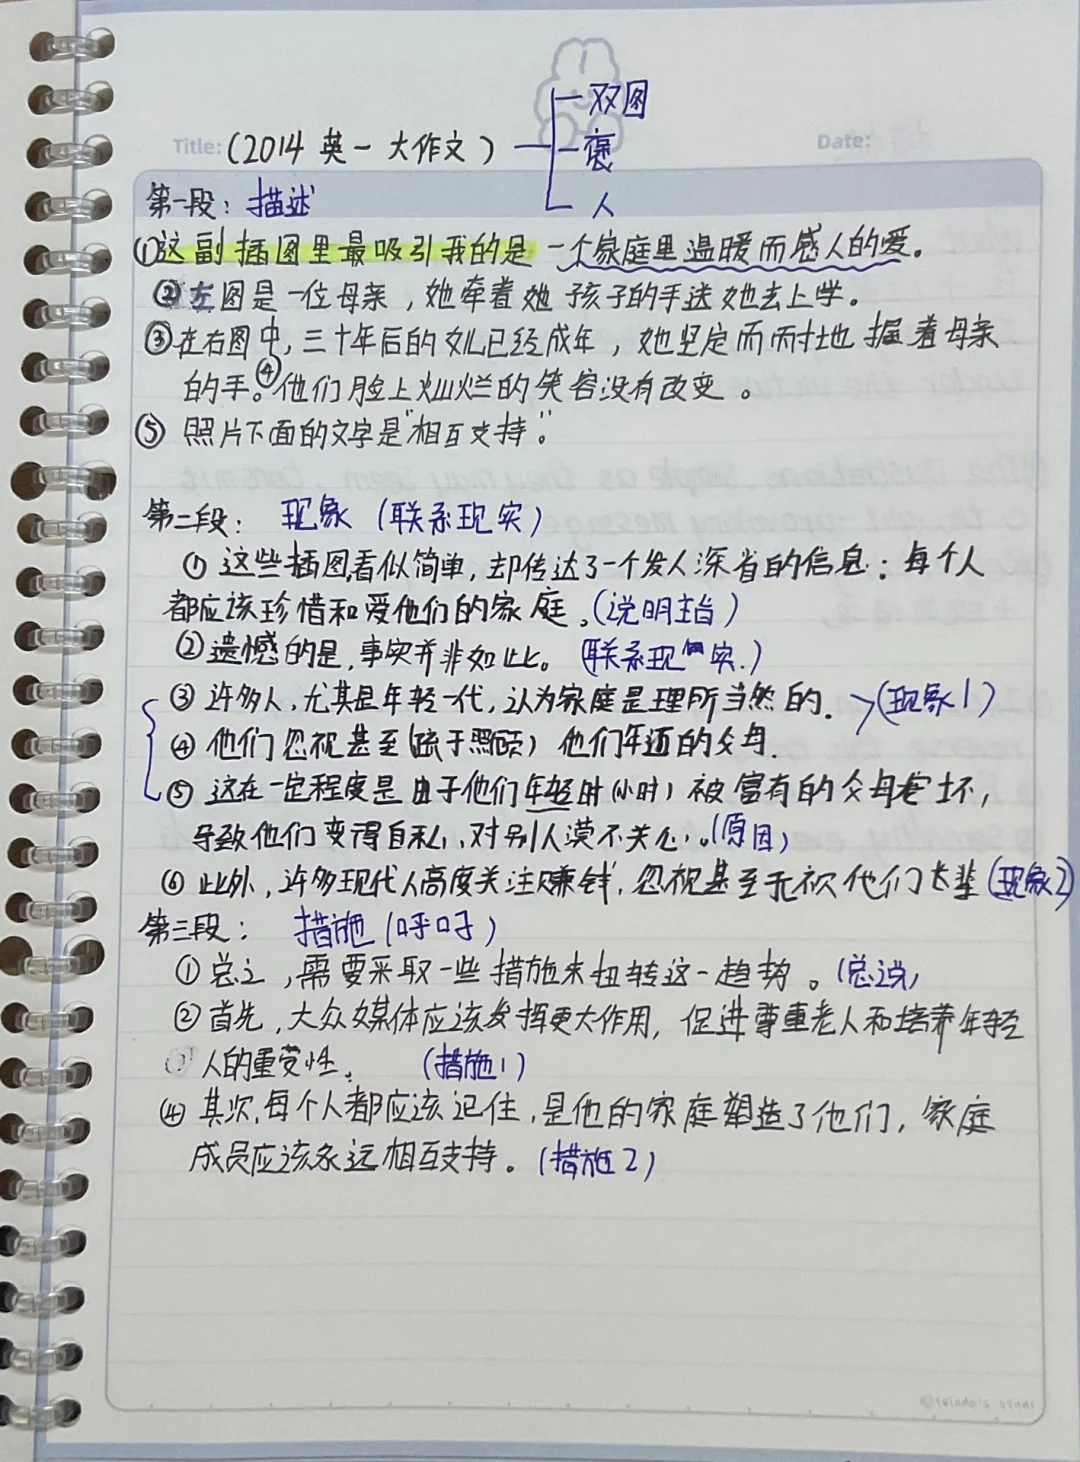 双图
Title: (2014 英一 大作文) 褒 Date:
人
第一段：描述
①这副插图里最吸引我的是一个家庭里温暖而感人的爱。
②左图是一位母亲，她牵着她孩子的手送她去上学。
③在右图中，三十年后的女儿已经成年，她坚定而耐地握着母亲
的手。④他们脸上灿烂的笑容没有改变。
⑤ 照片下面的文字是"相互支持"。
第二段： 现象（联系现实）
① 这些插图看似简单，却传达了一个发人深省的信息：每个人
都应该珍惜和爱他们的家庭。(说明主旨)
②遗憾的是，事实并非如此。（联系现实.）
③ 许多人，尤其是年轻一代，认为家庭是理所当然的. >(现象1)
④ 他们忽视甚至(疏于照顾) 他们年迈的父母.
⑤ 这在一定程度是由于他们年轻时(小时) 被富有的父母宠坏，
导致他们变得自私，对别人漠不关心。(原因)
⑥ 此外，许多现代人高度关注赚钱，忽视甚至无视他们长辈(现象2)
第三段： 措施(呼吁)
①总之，需要采取一些措施来扭转这一趋势。(总说)
②首先，大众媒体应该发挥更大作用，促进尊重老人和培养年轻
人的重要性. (措施1)
④ 其次，每个人都应该记住，是他的家庭塑造了他们，家庭
成员应该永远相互支持。(措施2)